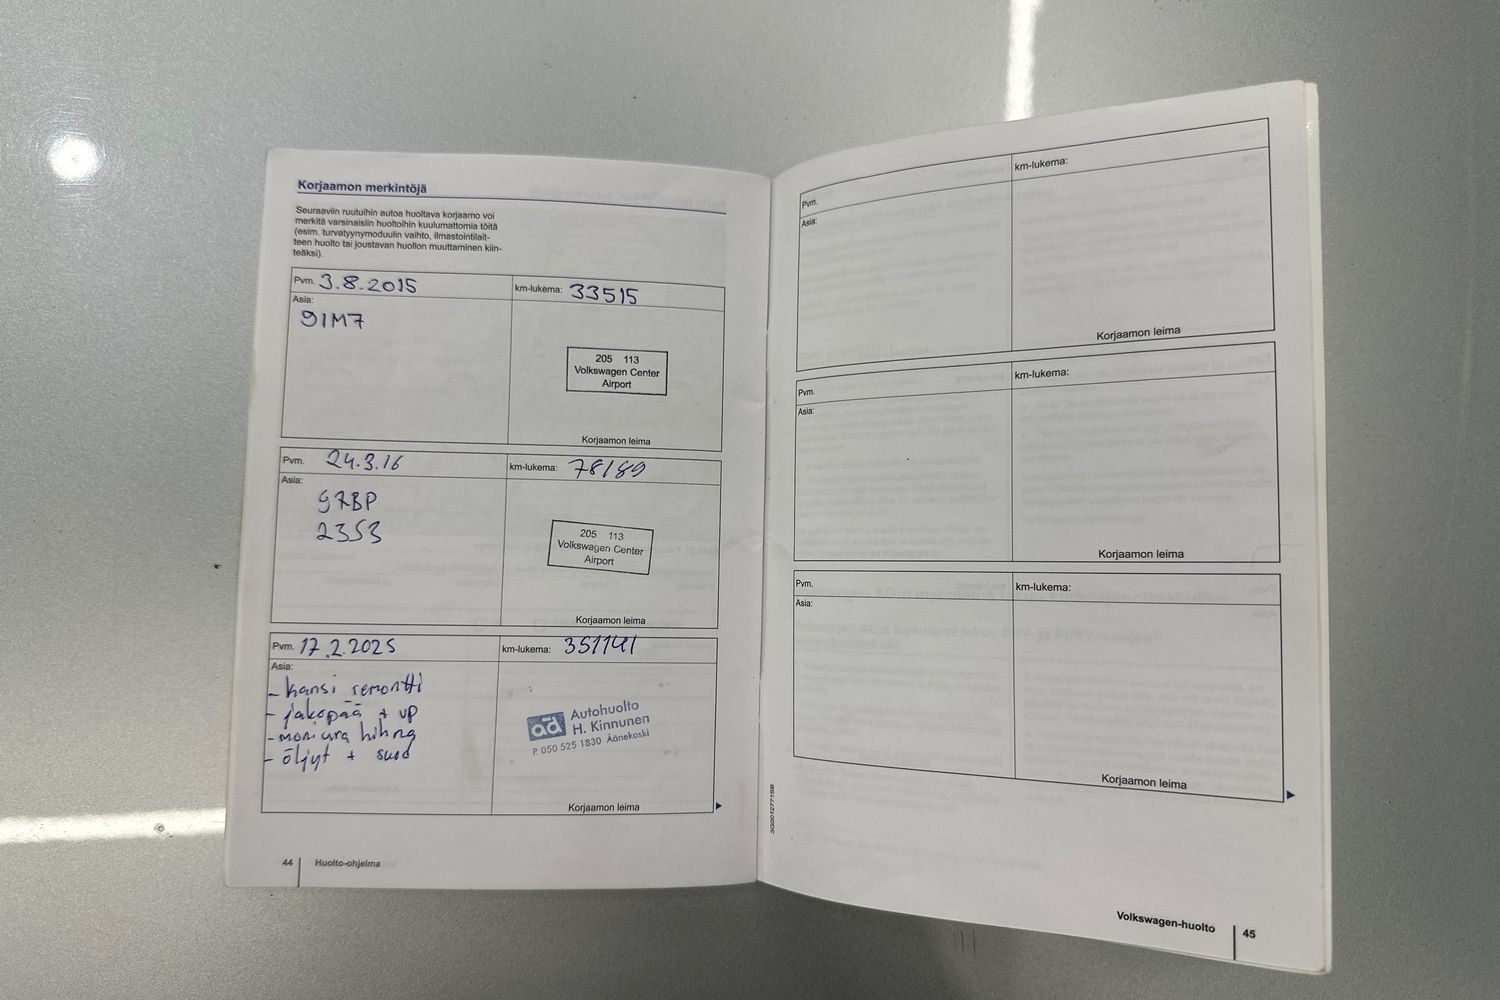 Korjaamon merkintöjä
Seuraaviin ruutuihin autoa huoltava korjaamo voi
merkitä varsinaisiin huoltoihin kuulumattomia töitä
(esim. turvatyynymoduulin vaihto, ilmastointilait-
teen huolto tai joustavan huollon muuttaminen kiin-
teäksi).
Pvm. 3.8.2015
km-lukema: 33515
Asia:
91M7
205 113
Volkswagen Center
Airport
Korjaamon leima
Pvm. 24.3.16
km-lukema: 78189
Asia:
97BP
23S3
205 113
Volkswagen Center
Airport
Korjaamon leima
Pvm. 17.2.2025
km-lukema: 351141
Asia:
- kansi remontti
- jakopää + vp
- moniura hihna
- öljyt + suod
ad Autohuolto
H. Kinnunen
P. 050 525 1830 Äänekoski
Korjaamon leima
44 Huolto-ohjelma
Pvm.
km-lukema:
Asia:
Korjaamon leima
Pvm.
km-lukema:
Asia:
Korjaamon leima
Pvm.
km-lukema:
Asia:
Korjaamon leima
3G0012771SB
Volkswagen-huolto 45